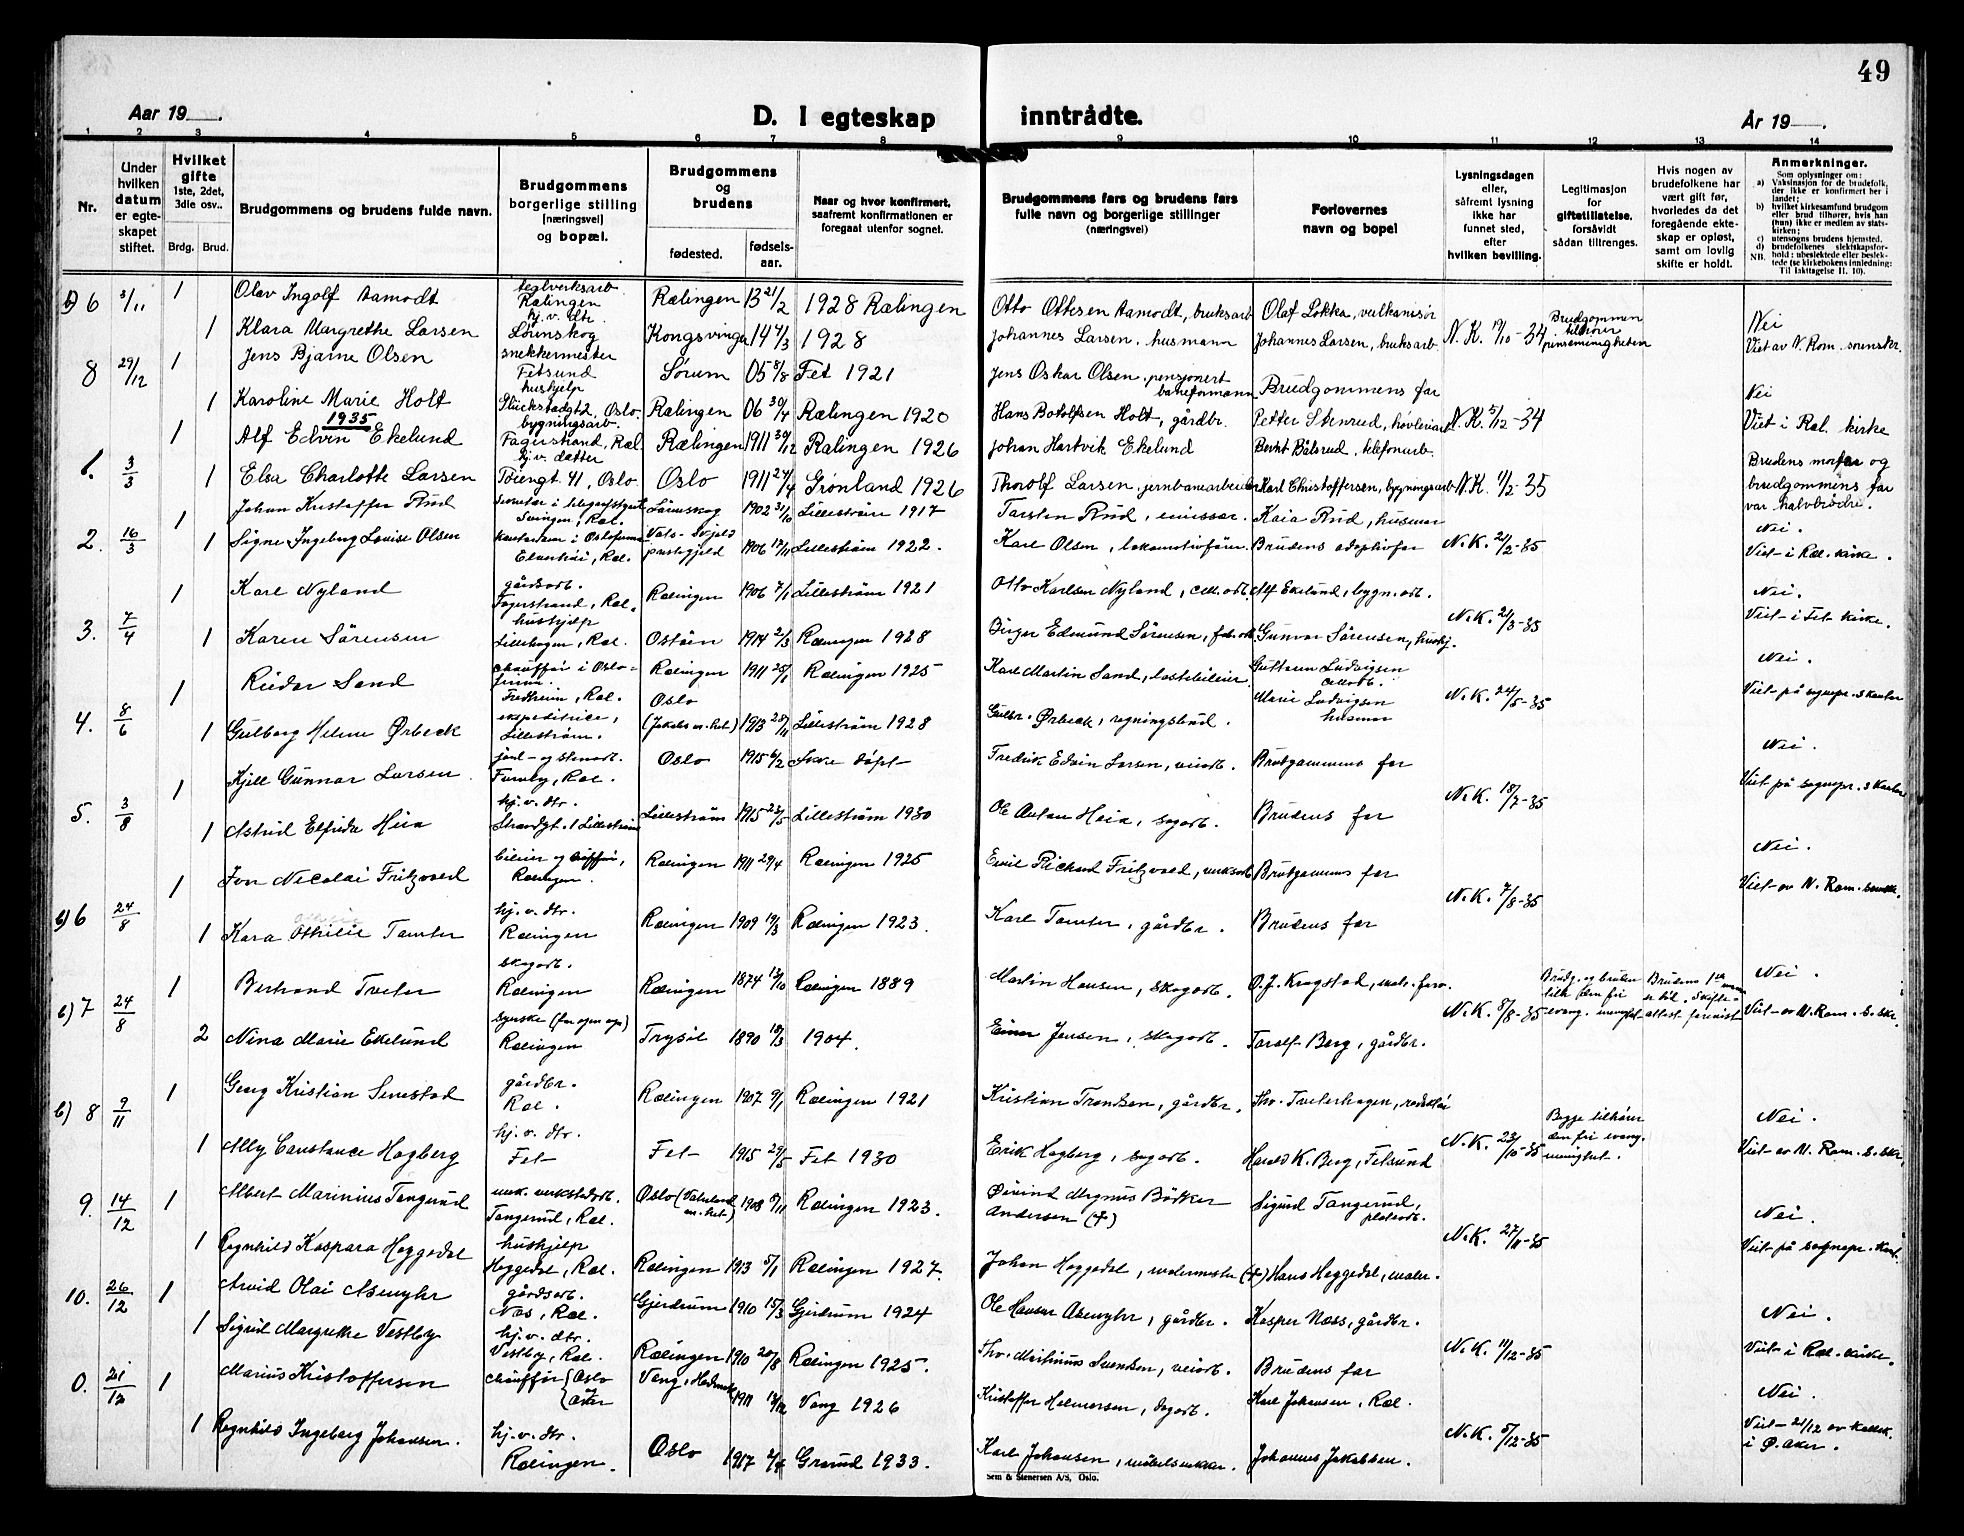 49
Aar 19 .
D. I egteskap
inntrådte.
År 19 .
1 2 3 4 5 6 7 8 9 10 11 12 13 14
Nr.
Under hvilken datum er egteskapet stiftet.
Hvilket gifte 1ste, 2det, 3die osv..
Brdg. Brud.
Brudgommens og brudens fulde navn.
Brudgommens borgerlige stilling (næringsvei) og bopæl.
Brudgommens og brudens
fødested.
fødsels-aar.
Naar og hvor konfirmert, saafremt konfirmationen er foregaat utenfor sognet.
Brudgommens fars og brudens fars fulle navn og borgerlige stillinger (næringsvei)
Forlovernes navn og bopel
Lysningsdagen eller, såfremt lysning ikke har funnet sted, efter hvilken bevilling.
Legitimasjon for giftetillatelse. forsåvidt sådan tiltrenges.
Hvis nogen av brudefolkene har vært gift før, hvorledes da det foregående ekteskap er opløst, samt om lovlig skifte er holdt.
Anmerkninger.
Som oplysninger om:
a) Vaksinasjon for de brudefolk, der ikke er konfirmert her i landet;
b) hvilket kirkesamfund brudgom eller brud tilhører, hvis han (hun) ikke er medlem av statskirken;
c) utensogns brudens hjemsted.
d) brudefolkenes slektskapsforhold: ubeslektede eller beslektede (se kirkebokens innledning: NB. Til Iakttagelse II. 10).
6 3/11 1 Olav Ingolf Aamodt teglverksarb. Rælingen Rælingen 13 21/2 1928 Rælingen Otto Ottesen Aamodt, bruksarb Olaf Løkka, vulkanisør Nei
1 Klara Margrethe Larsen hj.v. dtr. Lørenskog Kongsvinger 14 4/3 1928 Johannes Larsen, husmann Johannes Larsen, bruksarb. N.K. 19/10-34 Brudgommen tilhører pinsemenigheten Viet av N. Rom. sorenskr.
8 29/12 1 Jens Bjarne Olsen snekkermester Fetsund Sørum 05 5/8 Fet 1921 Jens Oskar Olsen, pensjonert baneformann Brudgommens far Nei
1 Karoline Marie Holt hushjelp Glückstadgt 2, Oslo. Rælingen 06 30/4 Rælingen 1920 Hans Botolfsen Holt, gårdbr. Petter Stenrud, høvleriarb. N.K. 5/12-34 Viet i Ræl. kirke
1935
1. 3/3 1 Alf Edvin Ekelund bygningsarb. Fagerstrand, Ræl. Rælingen 1911 30/12 Rælingen 1926 Johan Hartvik Ekelund Bernt Bålsrud, telefonarb. Brudens morfar og
1 Elsa Charlotte Larsen hj.v. datter Tøiengt. 41, Oslo Oslo 1911 24/4 Grønland 1926 Thorolf Larsen, jernbanearbeider Karl Christoffersen, bygningsarb N.K. 11/2-35 brudgommens far var halvbrødre.
2. 16/3 1 Johan Kristoffer Rud Løvenskog 1902 31/10 Lillestrøm 1917 Torsten Rud, emissær. Kaia Rud, husmor Nei.
1 Signe Ingeborg Lovise Olsen Elvestrøi, Ræl. 1906 17/11 Lillestrøm 1922. Karl Olsen, lokomotivfører Brudens adoptivfar N.K. 21/2-35 Viet i Ræl. kirke.
3. 7/4 1 Karl Nyland gårdsarb. Fagerstrand, Ræl. Rælingen 1906 7/1 Lillestrøm 1921 Otto Karlsen Nyland, cell.arb. Alf Ekelund, bygn.arb. Nei.
1 Karen Sörensen hushjelp Lillehagen, Ræl. 1914 2/3 Rælingen 1928 Birger Edmund Sörensen, fab.arb Gunvor Sörensen, hushj. N.K. 21/3-35 Viet i Fet kirke.
4. 8/6 1 Reidar Sand chauffør i Oslo-firma. Fredheim, Ræl. Rælingen 1911 25/1 Rælingen 1925 Karl Martin Sand, lastebileier Guttorm Ludvigsen cellarb. Nei.
1 Gulborg Helene Ørbeck ekspeditrice, Lillestrøm. Oslo (Jakobs m.het) 1913 25/11 Lillestrøm 1928 Gulbr. Ørbeck, regningsbud. Marie Ludvigsen husmor N.K. 24/5-35 Viet på sognepr.s kontor
5. 3/8 1 Kjell Gunnar Larsen jord- og stenarb. Furuby, Ræl. Oslo 1915 6/2 Ikke döpt Fredrik Edvin Larsen, veiarb. Brudgommens far Nei.
1 Astrid Elfrida Heia hj.v. dtr. Strandgt. 1 Lillestrøm Lillestrøm 1915 23/5 Lillestrøm 1930 Ole Anton Heia, sagarb. Brudens far N.K. 18/7-35 Viet på sognepr.s kontor
b) 6 24/8 1 Jon Nicolai Fritzvold bileier og chauffør, Rælingen. Rælingen 1911 29/4 Rælingen 1925 Emil Richard Fritzvold, verksarb Brudgommens far Nei.
1 Kara Othilie Tomter hj.v. dtr. Rælingen Rælingen 1909 19/3 Rælingen 1923. Karl Tomter, gårdbr. Brudens far N.K. 7/8-35 Viet av N. Rom. sorskr.
b) 7 24/8 1 Bertrand Tveter skogarb. Rælingen Rælingen 1874 13/10 Rælingen 1889 Martin Hansen, skogarb. O.J. Krogstad, Brudg. og bruden tilh. den fri evang. menighet Brudens 1ste mann er död. Skifteattest forevist Nei.
2 Nina Marie Ekelund Rælingen Trysil 1890 18/3 1904. Einar Jensen, skogarb. Toralf Berg, gårdbr. N.K. 8/8-35 Viet av N. Rom. s.skr.
b) 8 9/11 1 Georg Kristian Senestad gårdbr. Ræl. Rælingen 1907 9/1 Rælingen 1921 Kristian Trondsen, gårdbr. Thv. Tveterhagen, redaktör Nei.
1 Ally Constance Hogberg hj.v. dtr. Fet Fet 1915 29/5 Fet 1930 Erik Hogberg, sagarb. Harald K. Berg, Fetsund N.K. 23/10-35 Begge tilhörer den fri evang. menighet. Viet av N. Rom. s.skr.
9. 14/12 1 Albert Marinius Tangerud mek. verkstedarb. Tangerud, Ræl. Oslo (Vaterland m.het) 1908 8/11 Rælingen 1923. Øivind Magnus Bödker Andersen (†) Sigurd Tangerud, platearb. Nei.
1 Ragnhild Kaspara Heggedal hushjelp Heggedal, Ræl. Rælingen 1913 5/1 Rælingen 1927. Johan Heggedal, malermester (†) Hans Heggedal, maler. N.K. 27/11-35 Viet på sognepr. kont.
10. 26/12 1 Arvid Olai Asenyhr gårdsarb. Nes, Ræl. Gjerdrum 1910 15/3 Gjerdrum 1924 Ole Hansen Asenyhr, gårdbr. Kasper Næss, gårdbr. Nei.
1 Sigrid Margrethe Vestby hj.v. dtr. Vestby, Ræl. Rælingen 1910 20/8 Rælingen 1925. Thv. Martinius Svendsen, veiarb. Brudens far N.K. 11/12-35 Viet i Ræl. kirke.
0. 21/12 1 Marius Kristoffersen chauffør Oslo Vang, Hedmark 1911 Vang 1926 Kristoffer Helmersen, sagarb. Karl Johansen, Ræl. Nei.
1 Ragnhild Ingeborg Johansen. hj.v. dtr. Rælingen. Oslo 1917 Grorud 1933. Karl Johansen, möbelsnekker. Johannes Jakobsen. N.K. 5/12-35 Viet 21/12 av i Ø. Aker.
Sem & Stenersen A/S, Oslo.